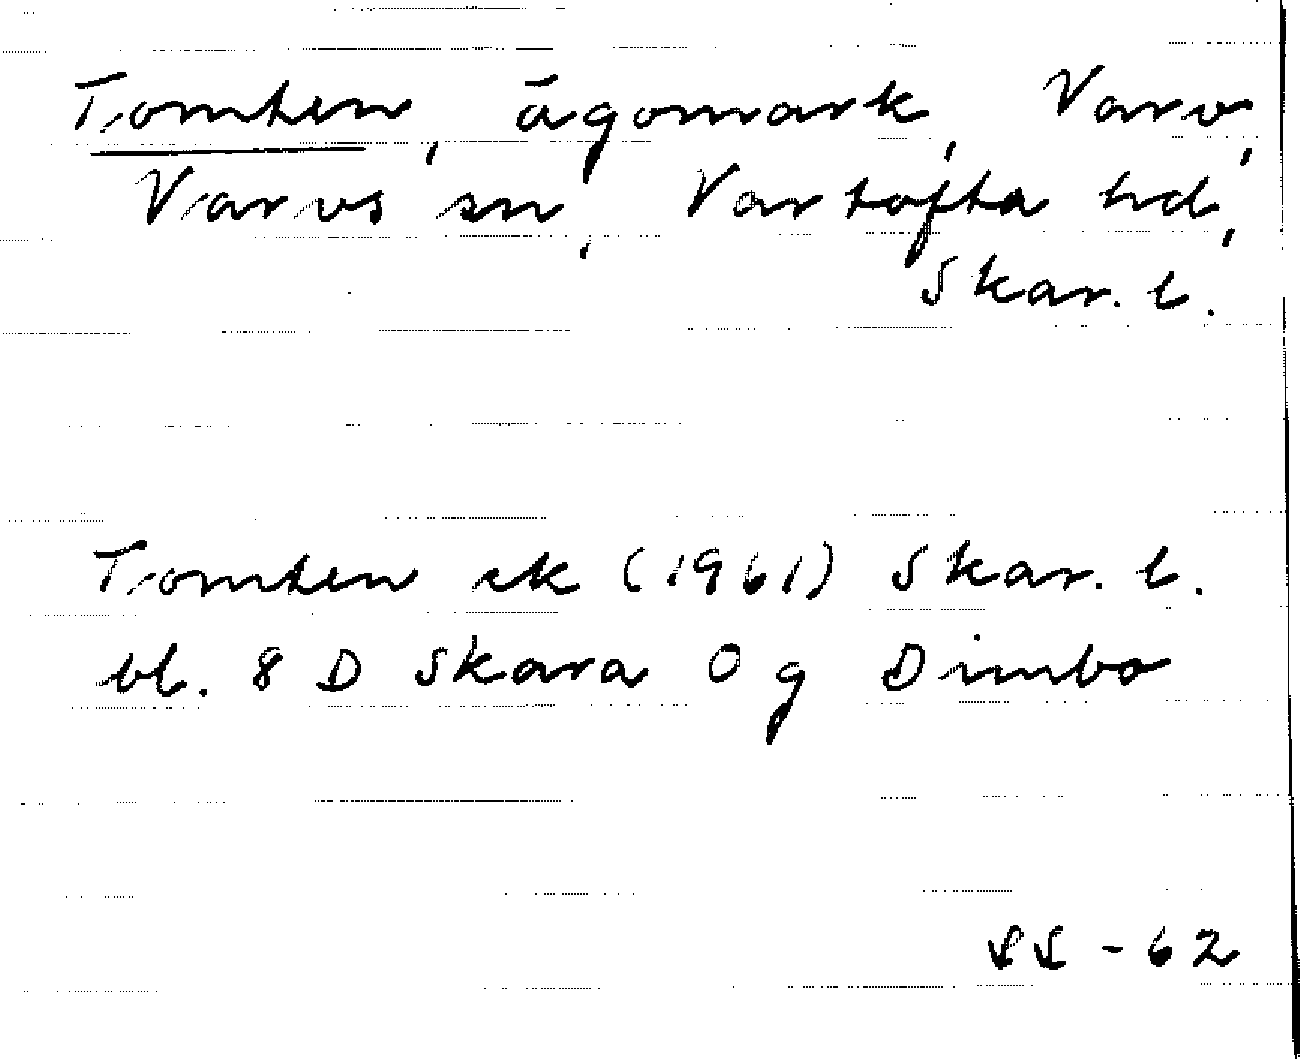 Tomten, ägomark, Varv,
Varvs sn, Vartofta hd,
Skar. l.
Tomten ek (1961) Skar. l.
bl. 8 D Skara 0 g Dimbo
SL - 62